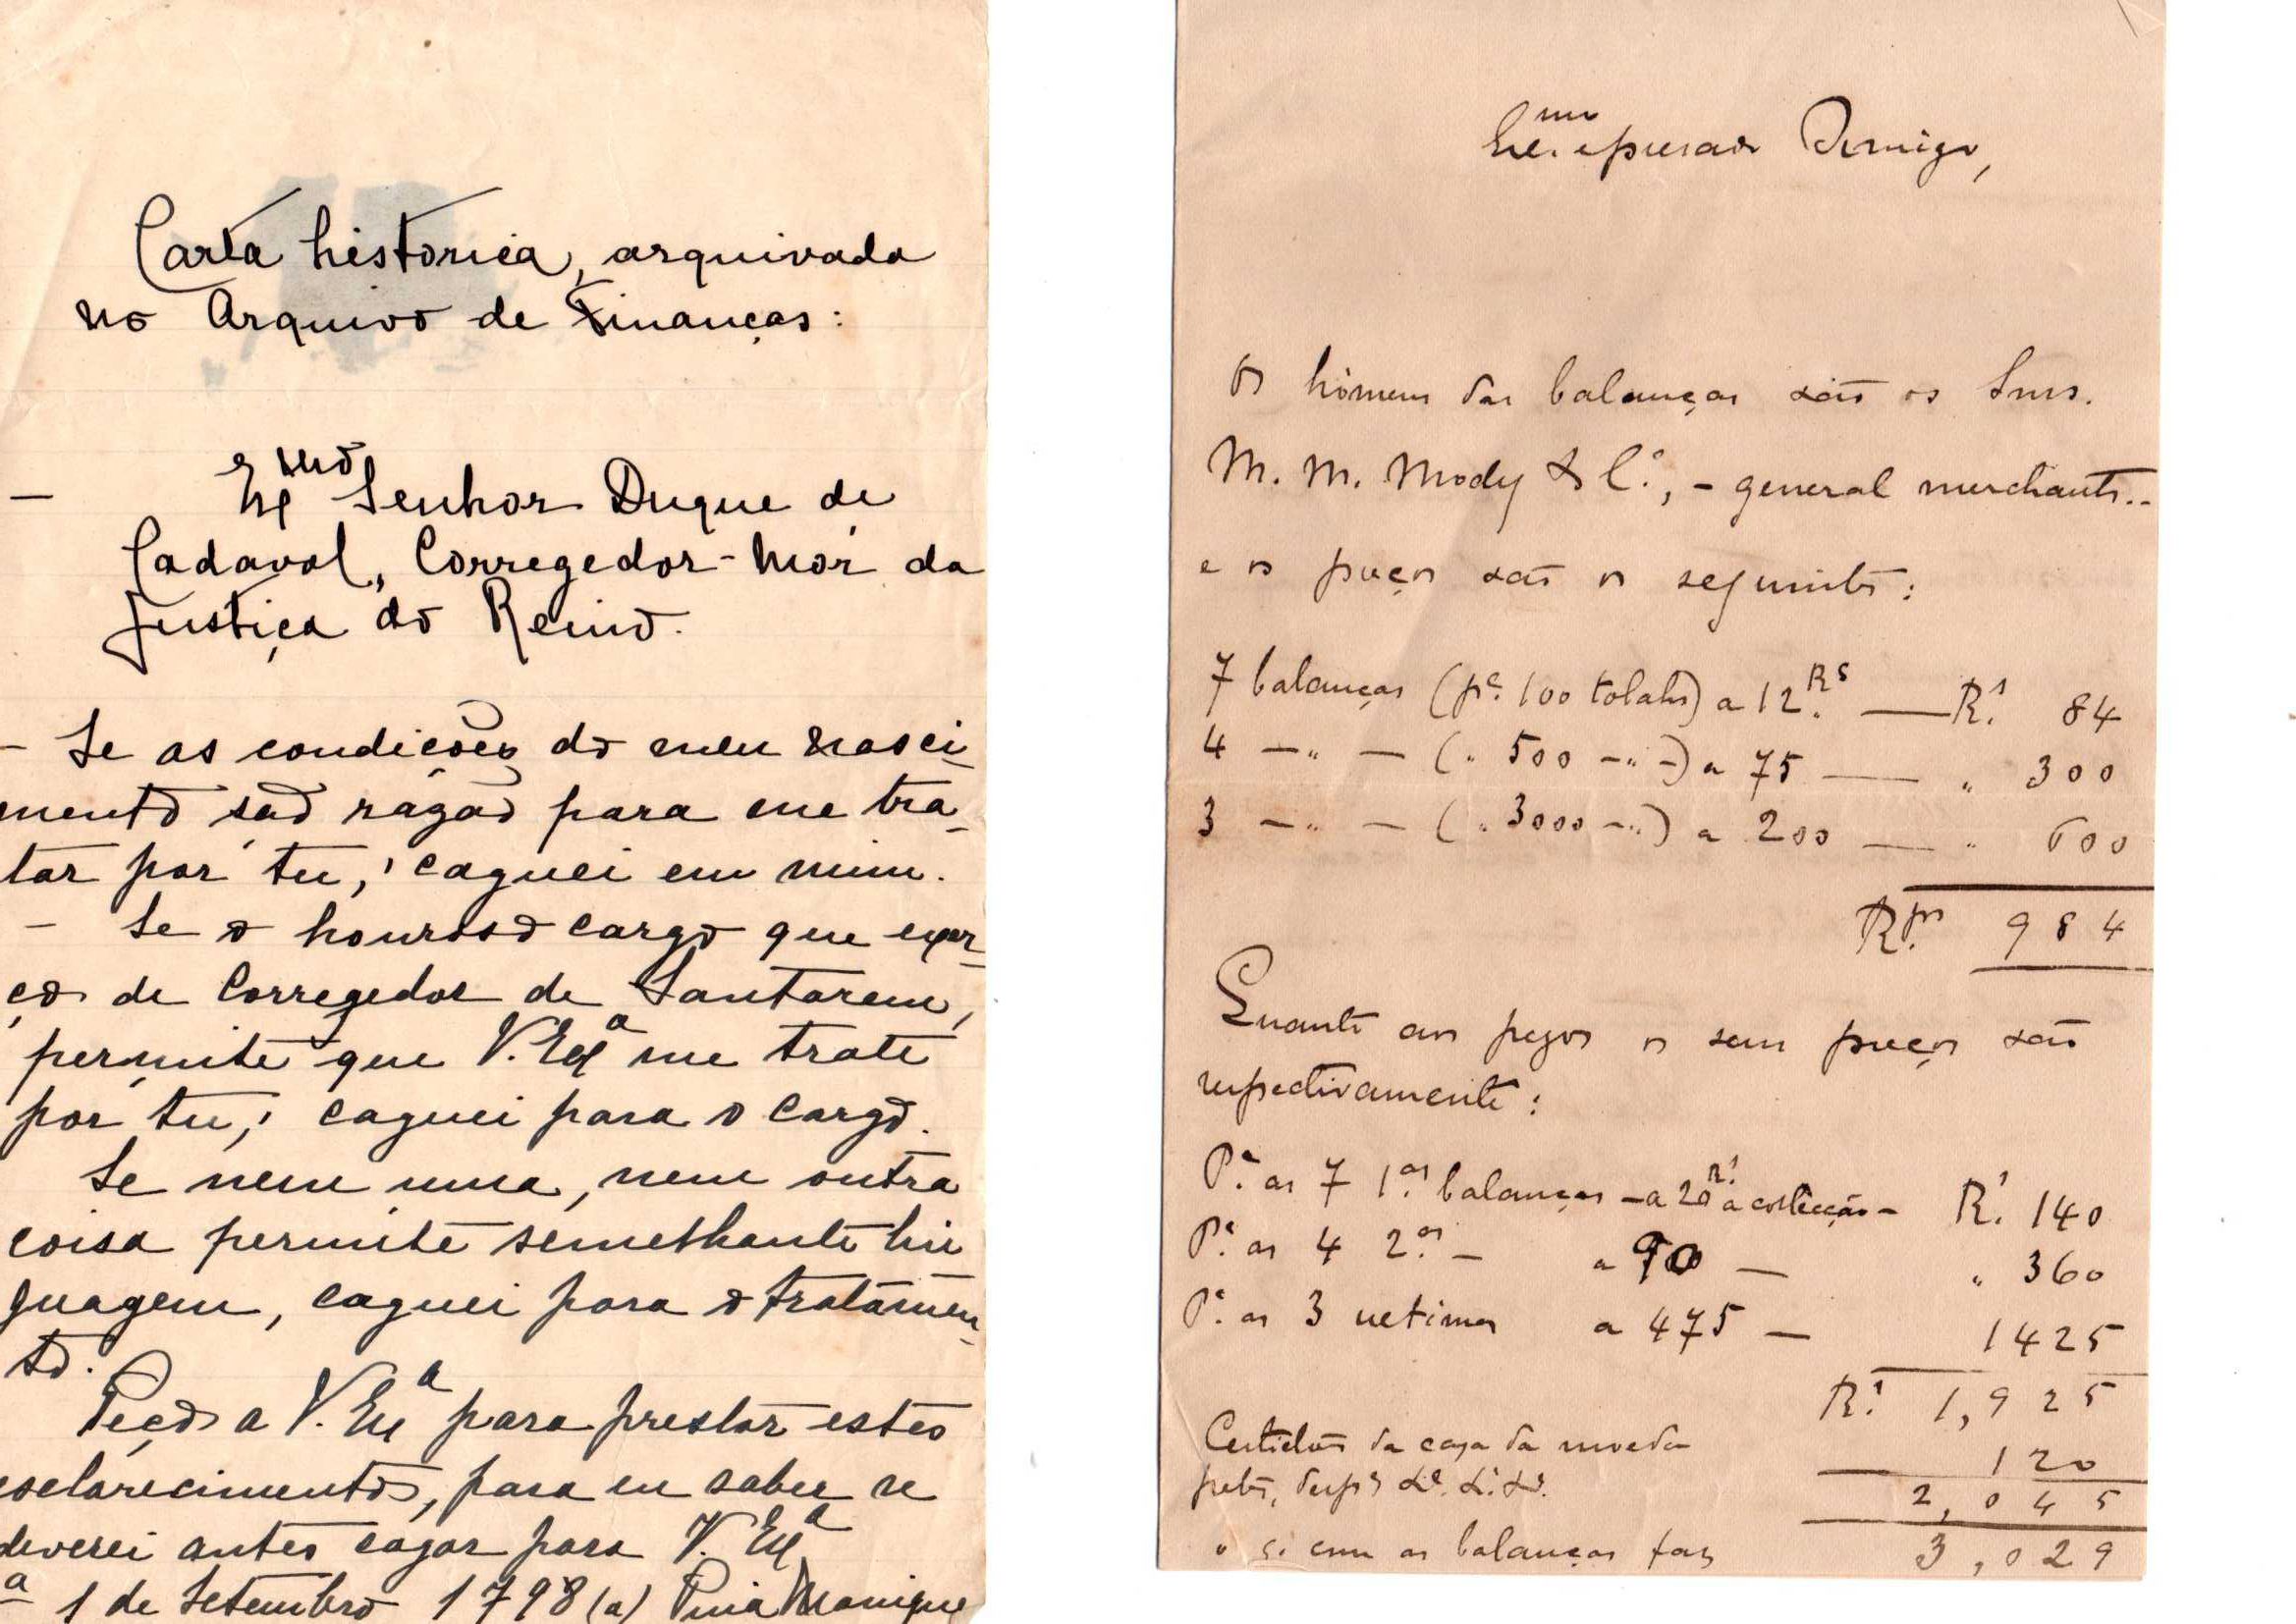 Carta historica, arquivada
no Arquivo de Finanças:
— Exmo Senhor Duque de
Cadaval, Corregedor-Mor da
Justiça do Reino.
- Se as condições do meu nasci-
mento são razão para me tra-
tar por tu, caguei em mim.
- Se o honroso cargo que exer-
ço de Corregedor de Santarem,
permite que V. Exa me trate
por tu, caguei para o cargo.
Se nem uma, nem outra
coisa permite semelhante lin
guagem, caguei para o tratamen-
to.
Peço a V. Exa para prestar estes
esclarecimentos, para eu saber se
deverei antes cagar para V. Exa
a 1 de Setembro 1798 (a) Pina Manique
Exmo e presado Amigo,
Os hómens das balanças são os Snrs.
M. M. Mody & Cº, - general merchants..
e os preços são os seguintes:
7 balanças (pª. 100 tolahs) a 12 Rs — Rs. 84
4 —"— (" 500 —"—) a 75 — " 300
3 —"— (" 3000 —"—) a 200 — " 600
Rps. 984
Quanto aos pezos os seus preços são
respectivamente:
Pª. as 7 1.as balanças — a 20 Rs. a colecção — Rs. 140
Pª. as 4 2.as — a 90 — " 360
Pª. as 3 ultimas a 475 — 1425
Rs. 1,925
Certidão da caza da moeda
fretes, desps 120
2,045
com as balanças faz 3,029